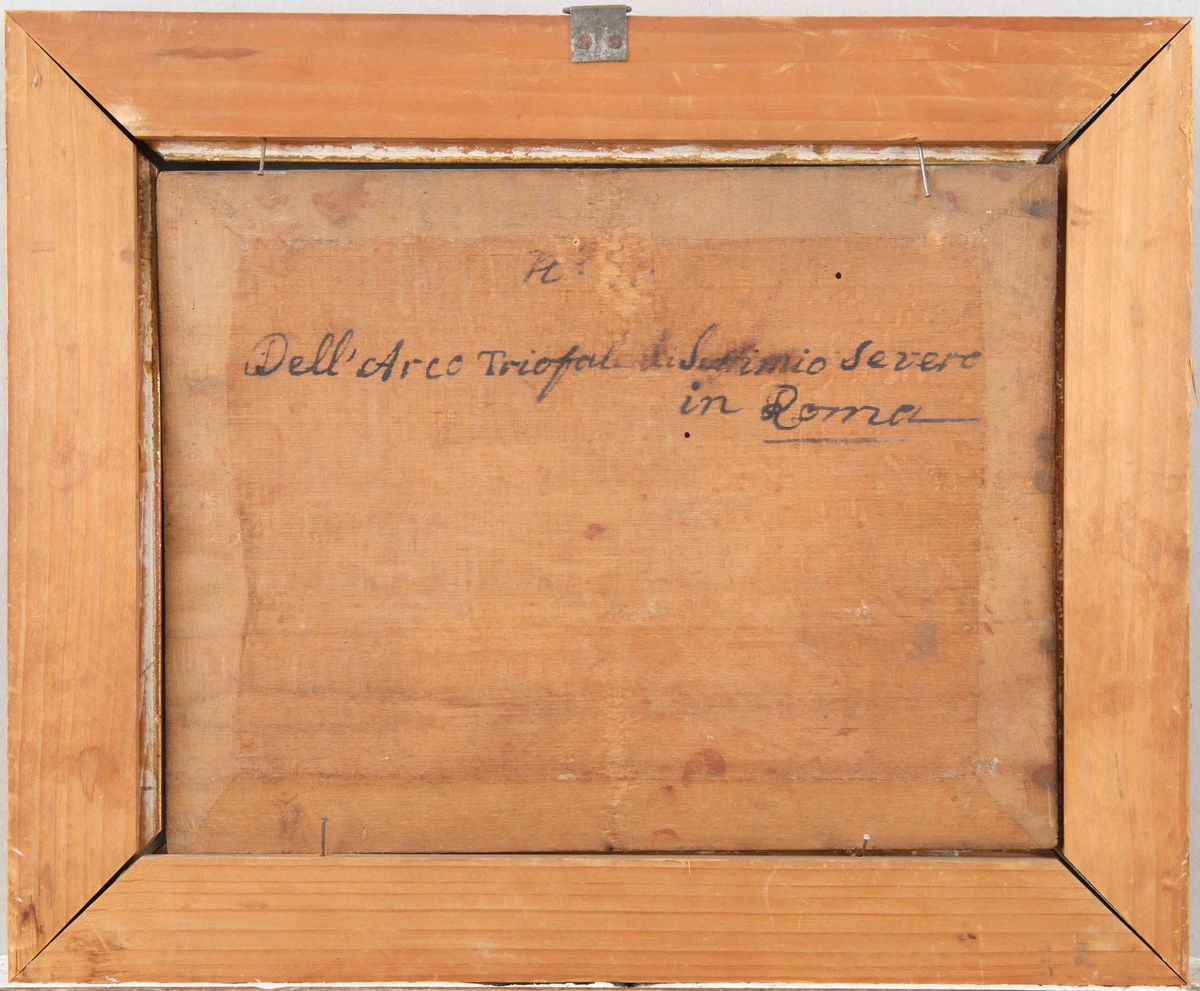 Dell'Arco Triofale di Settimio Severo
in Roma